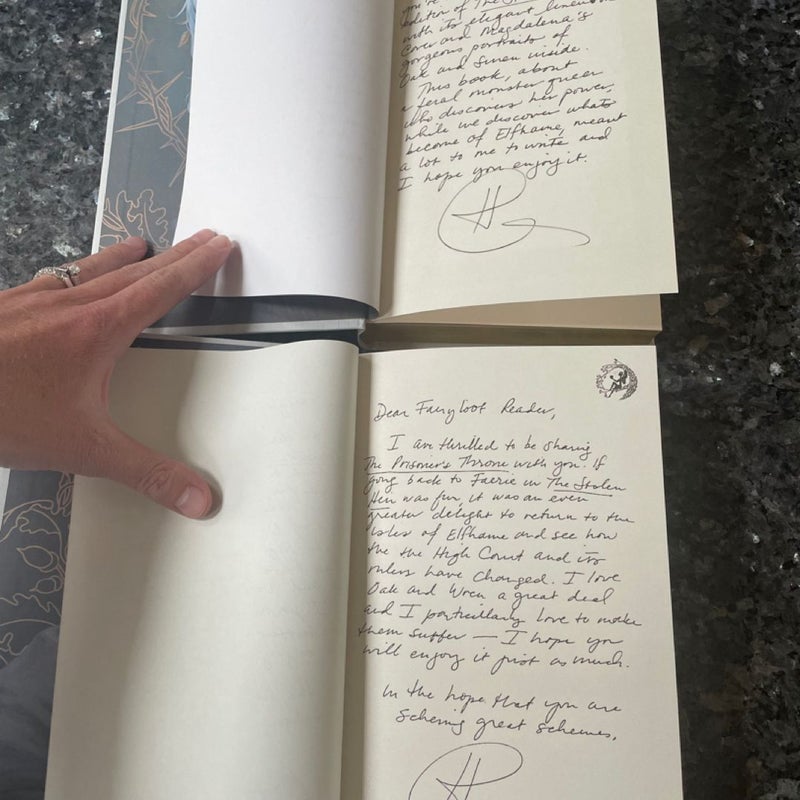 you're
edition of The S
with its elegant linework
cover and Magdalena's
gorgeous portraits of
Oak and Suren inside.
This book, about
a feral monster queen
who discovers her power,
while we discover what's
become of Elfhame, meant
a lot to me to write and
I hope you enjoy it.
H
Dear Fairyloot Reader,
I am thrilled to be sharing
The Prisoner's Throne with you. If
going back to Faerie in The Stolen
Heir was fun, it was an even
greater delight to return to the
Isles of Elfhame and see how
the the High Court and its
rulers have changed. I love
Oak and Wren a great deal
and I particularly love to make
them suffer — I hope you
will enjoy it just as much.
In the hope that you are
scheming great schemes,
H